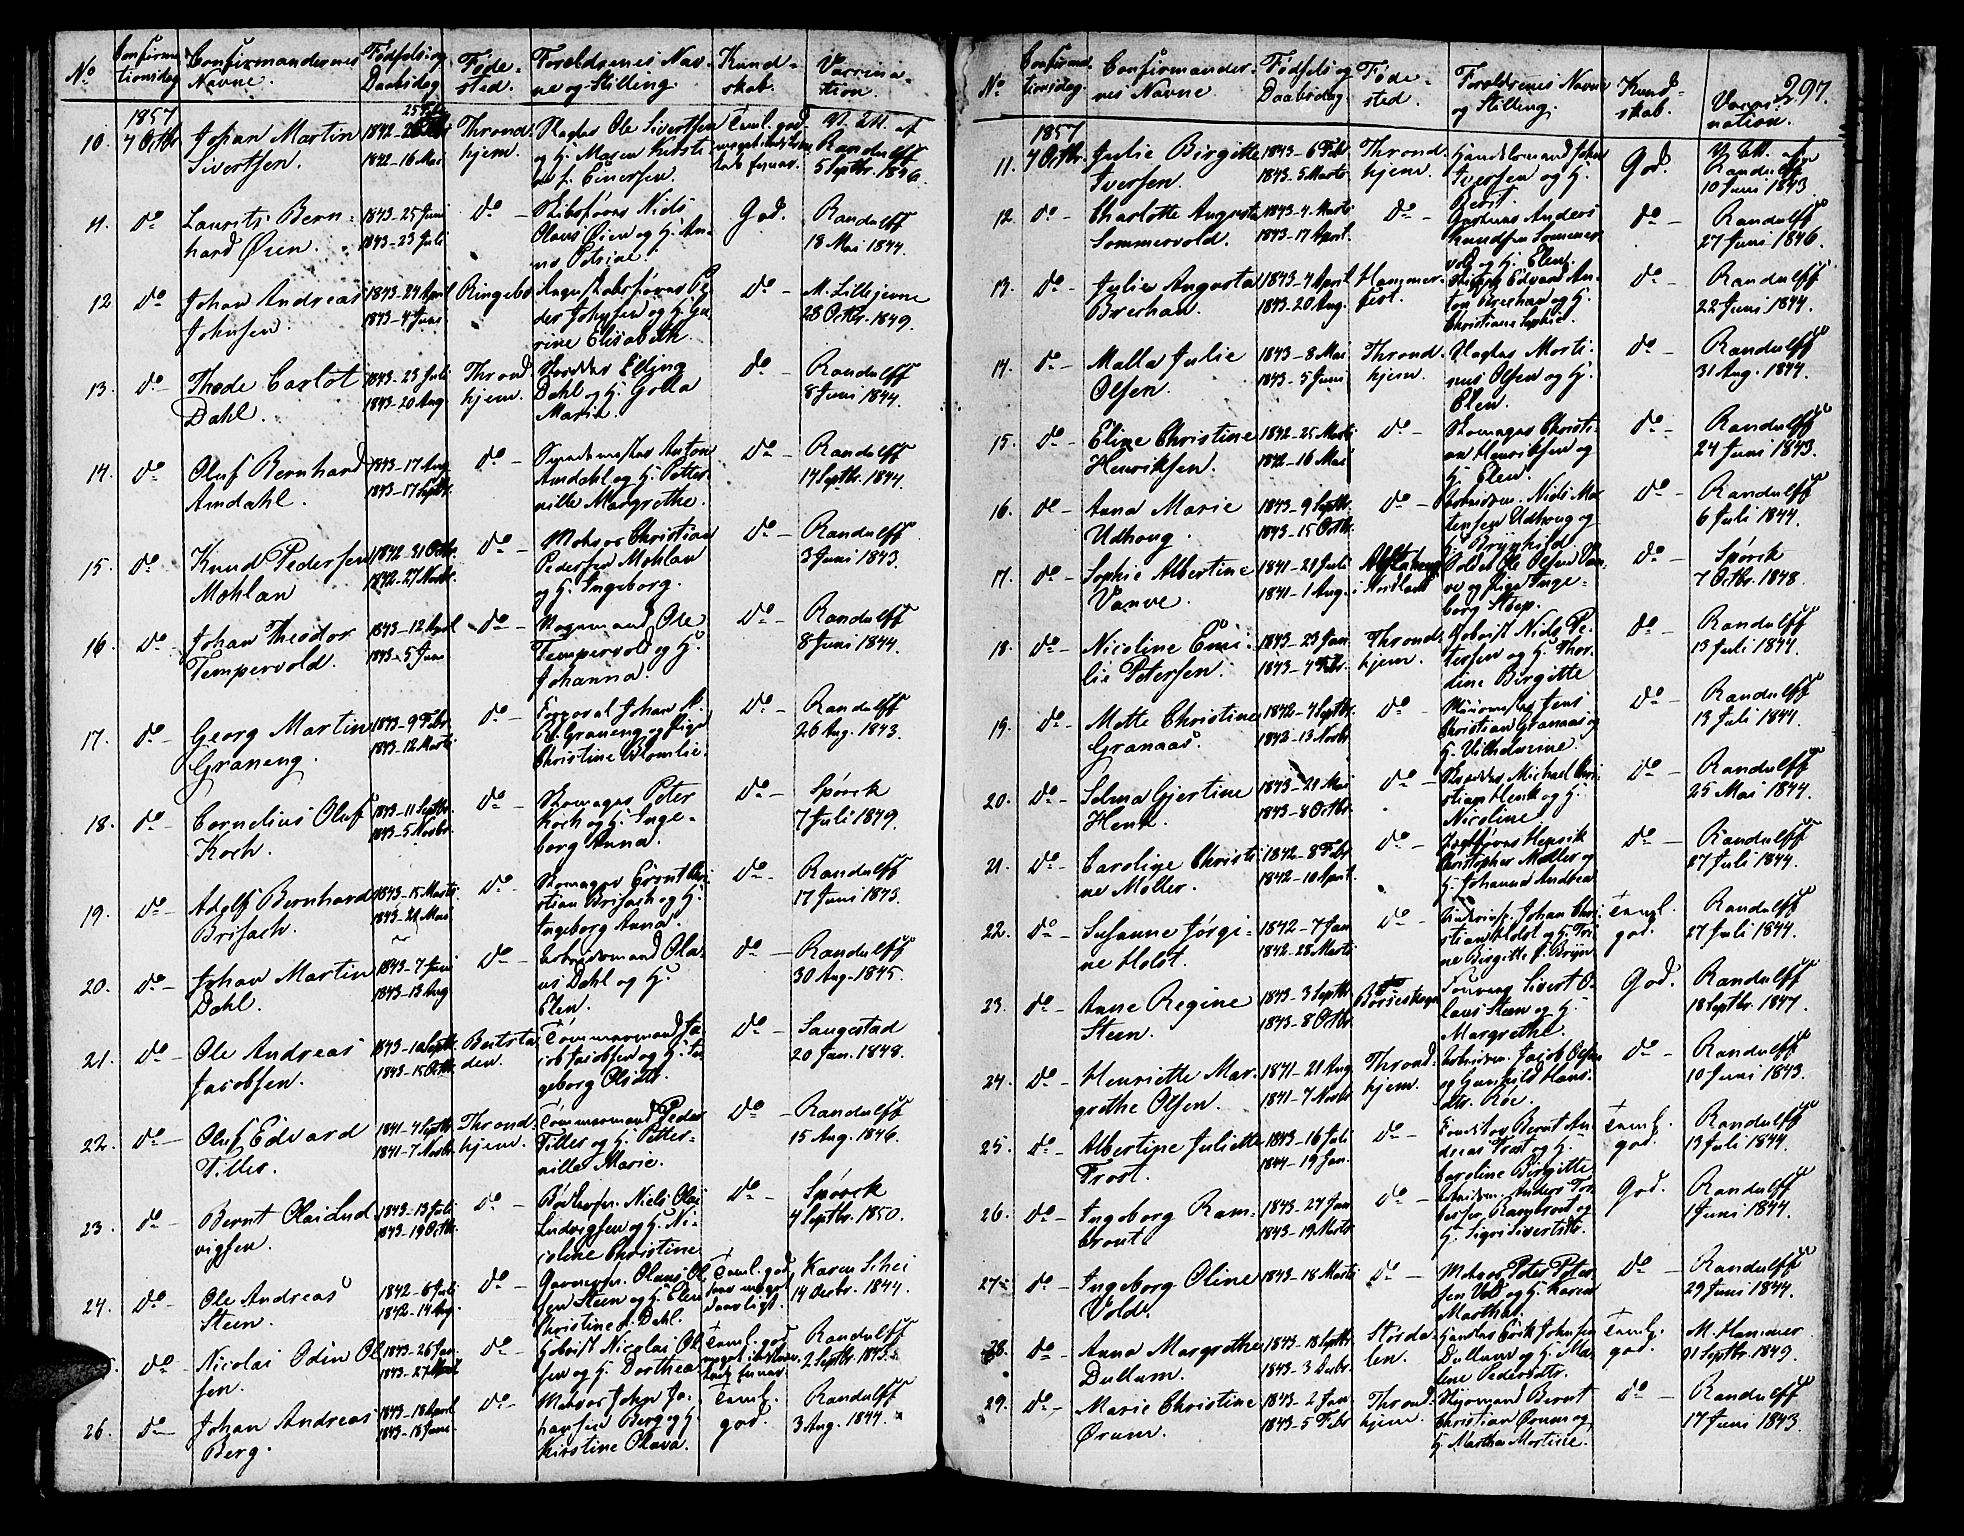 No
Confirma-
tionsdag
Confirmandernes
Navne.
Fødsels og
Daabsdag
Føde-
sted.
Forældrenes Nav-
ne og Stilling
Kund-
skab.
Vaccina-
tion.
1857
10. 7 Octbr Johan Martin
Sivertsen.
1842-16 Mai
Thrond-
hjem.
Ole Sivertsen
og H. Maren
Teml. god.
Randulff
5 Septbr. 1846.
11. do Laurits Bern-
hard Øien.
1843-25 Juni
1843-23 Juli
do - Skibsfører Niels
Olaus Øien og H. An-
ne Petrine.
God. Randulff
18 Mai 1844.
12 do Johan Andreas
Johnsen.
1843-24 April
1843-4 Juni
Ringebo
der Johnsen og H.
rine Elisabeth.
do - M. Lillejevne
28 Octbr. 1849.
13. do - Thode Carlot
Dahl.
1843-23 Juli
1843-20 Aug
Thrond
hjem.
Skrædder Elling
Dahl og H. Golla
Maria.
do - Randulff
8 Juni 1844.
14. do Oluf Bernhard
Amdahl.
1843-17 Aug
1843-17 Septbr.
do - Anton
Amdahl og H. Petter-
nille Margrethe.
do - Randulff
14 Septbr. 1844.
15. do Knud Pedersen
Mohlan
1842-31 Octbr.
1842-27 Novbr.
do - Matros Christian
Pedersen Mohlan
og H. Ingeborg.
do - Randulff
3 Juni 1843.
16. do Johan Theodor
Tempervold.
1843-12 April
1843-5 Juni
do - Vognmand Ole
Tempervold og H.
Johanna.
do - Randulff
8 Juni 1844.
17. do - Georg Martin
Graneng.
1843-9 Febr.
1843-12 Marts
do - Corporal Johan
Graneng og Pige
Christine Blomlie.
do - Randulff
26 Aug. 1843.
18. do - Cornelius Oluf
Koch.
1843-11 Septbr.
1843-5 Novbr.
do - Skomager Peter
Koch og H. Inge-
borg Anna.
do - Spørck
7 Juli 1849.
19. do - Adolf Bernhard
Brisach.
1843-15 Marts
1843-21 Mai
do - Skomager Ernt Chri
stian Brisach og H.
Ingeborg Anna.
do - Randulff
17 Juni 1843.
20. do - Johan Martin
Dahl.
1843-7 Juni
1843-13 Aug
do - Arbeidsmand Ola-
us Dahl og H.
Elen.
do - Randulff
30 Aug. 1845.
21. do - Ole Andreas
Jacobsen.
1843-10 Septbr.
1843-15 Octbr.
Tømmermand Ja-
cob Jacobsen og H. In
geborg Olsdtr.
do - Sangestad
20 Jan. 1848.
22. do - Oluf Edvard
Tiller.
1841-4 Septbr.
1841-7 Novbr.
Thrond-
hjem.
Tømmermand Peder
Tiller og H. Petter-
nille Marie.
do - Randulff
15 Aug. 1846.
23. do - Bernt Olai Lud
vigsen.
1843-13 Juli
1843-19 Octbr.
do - Niels Olai
Ludvigsen og H. Ni-
coline Christine
do - Spørck
4 Septbr. 1850.
24. do - Ole Andreas
Steen.
1842-6 Juli
1842-14 Aug.
do - Olaus Ol
sen Steen og H. Elen
Christine f. Dahl.
Teml. god
Karen Schei
14 Decbr. 1844.
do - Nicolai Odin Ol
sen.
1843-26 Jan.
1843-27
do - Nicolai Ol
sen og H. Dorthea
Teml. god
Randulff
2 Septbr. 1843.
26. do - Johan Andreas
Berg.
1843-18 April
1843-18 Juni.
do - Matros John Jo-
hansen Berg og H.
Kirstine Olava.
Teml.
god.
Randulff
3 Aug. 1844.
297.
No
Confirma-
tionsdag.
Confirmander-
nes Navne.
Fødsels og
Daabsdag.
Føde-
sted.
Forældrenes Navne
og Stilling.
Kund-
skab.
Vacci-
nation.
1857
11. 7 Octbr. Julie Birgitte
Iversen.
1843-6 Febr
1843-5 Marts
Thrond-
hjem.
Handelsmand Johan
Iversen og H.
Berit.
God. Randulff
10 Juni 1843.
12. do - Charlotte Augusta
Sommervold.
1843-4 Marts
1843-17 April.
do - Anders
Knudsen Sommer-
vold og H. Elen.
do - Randulff
27 Juni 1846.
13. do - Julie Augusta
Brechan.
1843-4 April
1843-20 Aug.
Hammer-
fest.
Edvard An-
ton Brechan og H.
Christiane Sophie.
do - Randulff
22 Juni 1844.
14. do - Malla Julie
Olsen.
1843-8 Mai
1843-5 Juni
Thrond-
hjem.
Slagter Morti-
nus Olsen og H.
Elen.
do - Randulff
31 Aug. 1844.
15. do - Eline Christine
Henriksen.
1842-25 Marts
1842-16 Mai
do - Skomager Christi-
an Henriksen og
H. Elen.
do - Randulff
24 Juni 1843.
16. do - Anna Marie
Udhoug.
1843-9 Septbr.
1843-15 Octbr.
do - Arbeidsm. Niels Mor
tensen Udhoug og
H. Brynhild
do - Randulff
6 Juli 1844.
17. do - Sophie Albertine
Vanve.
1841-21 Juli
1841-1 Aug.
i Nordland
Ole Olsen Van-
ve og Pige Inge-
borg Støp.
do - Spørck
7 Octbr. 1848.
18. do - Nicoline Emi-
lie Petersen.
1843-23 Jan.
1843-4 Febr.
Thrond-
hjem.
Niels Pe-
tersen og H. Thor-
dine Birgitte
do - Randulff
13 Juli 1844.
19. do - Mette Christine
Granaas.
1842-4 Septbr.
1842-13 Novbr.
do - Muurmester Jens
Christian Granaas og
H. Vilhelmine.
do - Randulff
13 Juli 1844.
20. do - Selma Gjertine
Henk.
1843-21 Mai
1843-8 Octbr
do - Skrædder Michael Chri-
stian Henk og H.
Nicoline
do - Randulff
25 Mai 1844.
21. do - Caroline Christi
ne Møller.
1842-8 Febr
1842-10 April.
do - Henrik
Christopher Møller og
H. Johanna Andrea
do - Randulff
27 Juli 1844.
22. do - Susanne Jørgi-
ne Holst.
1842-7 Jan
1842-28 Marts
do - Johan Chri
stian Holst og H. Tri
ne Birgitte f. Bryn
Teml.
god.
Randulff
27 Juli 1844.
23. do - Anne Regine
Steen.
1843-3 Septbr
1843-8 Octbr
Børseskogn
Sivert O-
laus Steen og H.
Margrethe.
God. Randulff
18 Septbr. 1847.
24. do - Henriette Mar-
grethe Olsen.
1841-21 Aug
1841-7 Novbr
Thrond-
hjem.
Arbeidsm. Jacob Olsen
og Gunhild Hans-
dtr. Roe.
do - Randulff
10 Juni 1843.
25. do - Albertine Juliette
Trost.
1843-16 Juli
1844-19 Jan.
do - Bernt An-
dreas Trost og H.
Caroline Birgitte
Teml.
god.
Randulff
13 Juli 1844.
26. do - Ingeborg Ram-
brout.
1843-27 Jan
1843-19 Marts
do - Arbeidsm. Anders Tor
gersen Rambrout og
H. Sigri Sivertsdtr.
God. Randulff
1 Juni 1844.
27. do - Ingeborg Oline
Vold.
1843-18 Marts
do - Matros Peter Peter-
sen Vold og H. Karen
Martha.
do - Randulff
29 Juni 1844.
28. do - Anna Margrethe
Dullum.
1843-18 Septbr.
1843-3 Decbr.
Størda-
len.
Erik Johnsen
Dullum og H. Ma-
lene Pedersdtr.
Teml.
god.
M. Hammer
21 Septbr. 1849.
29. do - Marie Christine
Ørum.
1843-2 Jan
1843-5 Febr
Thrond-
hjem.
Styrmand Bernt
Christian Ørum og
H. Martha Mortine.
do - Randulff
17 Juni 1843.